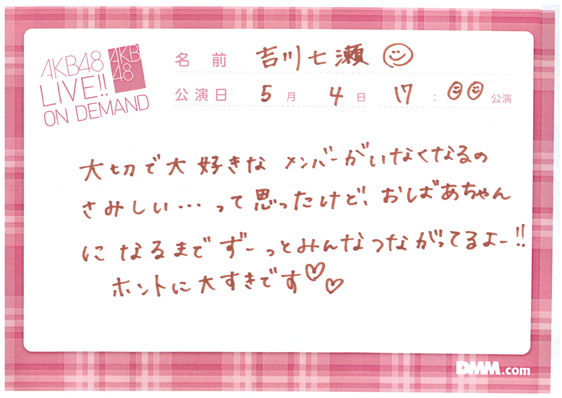 AKB48
LIVE!!
ON DEMAND
AKB
48
名前 吉川七瀬
公演日 5月4日 17:00公演
大切で大好きなメンバーがいなくなるの
さみしい…って思ったけど、おばあちゃん
になるまでずーっとみんなつながってるよー!!
ホントに大すきです♡♡
DMM.com